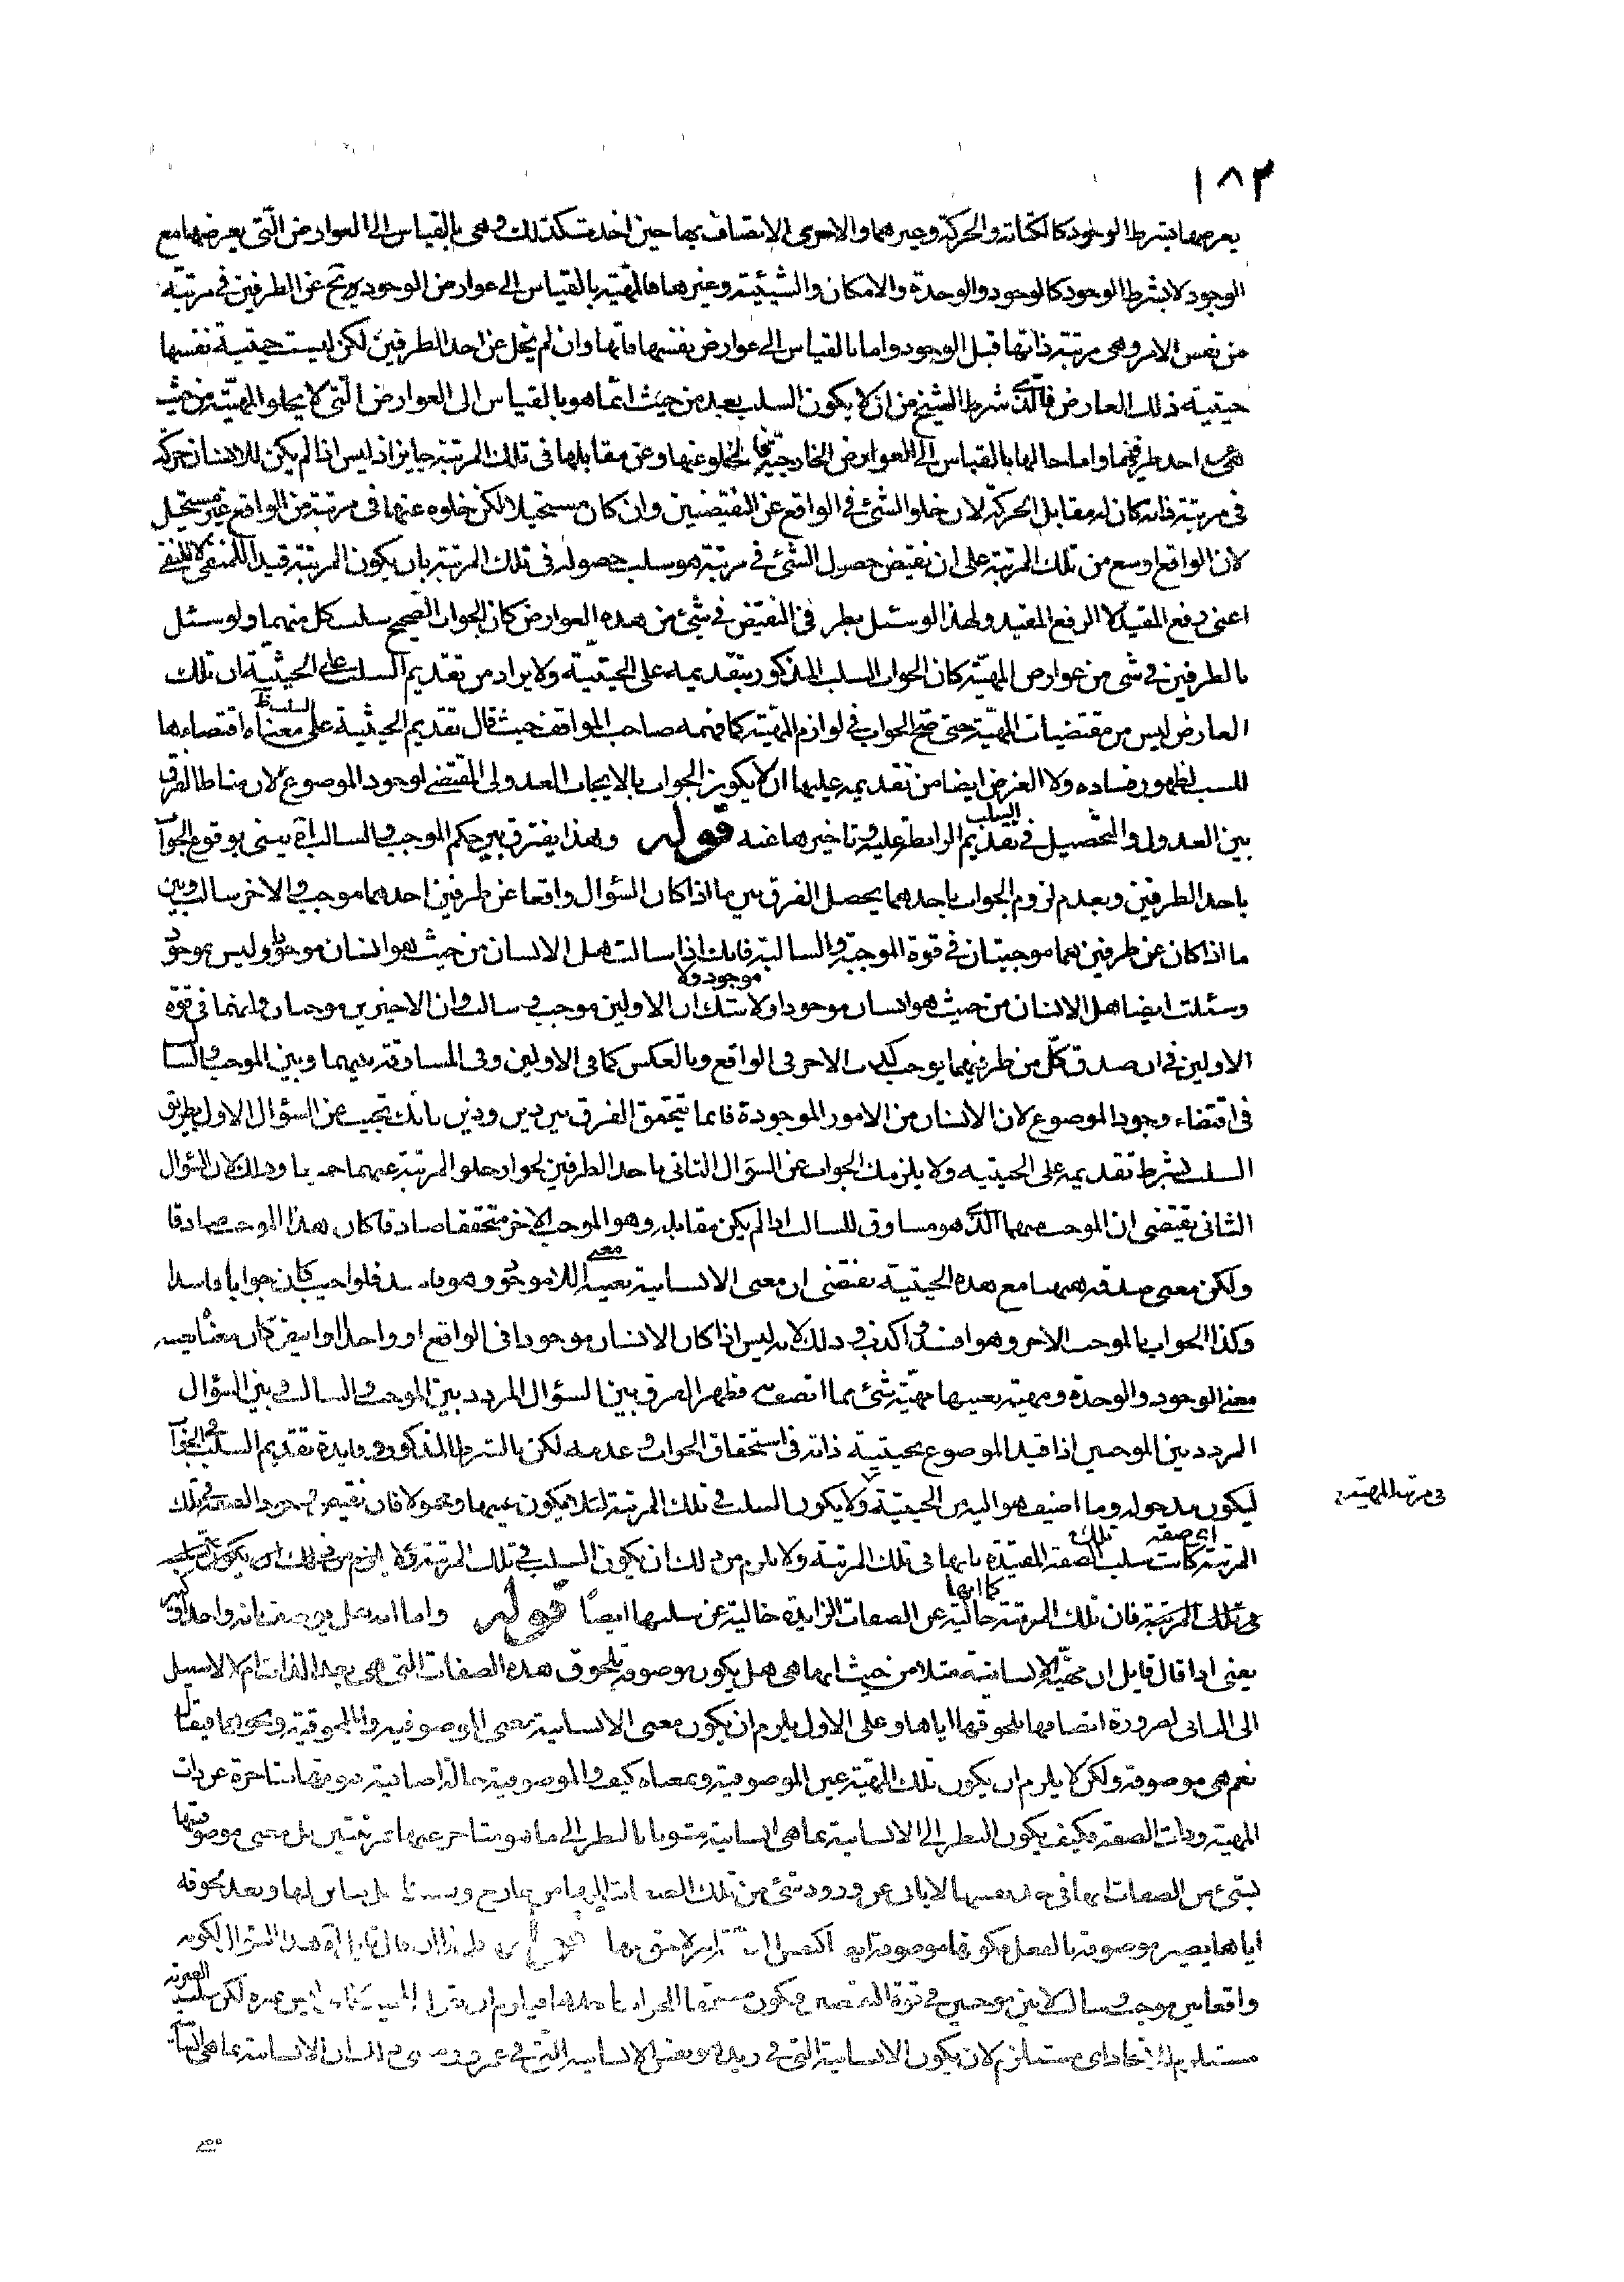 ١٨٣
يعرضها بشرط الوجود كالكتابة والحركة وغيرهما والاخرى الاتصاف بها حين اخذت كذلك وهى بالقياس الى العوارض الّتى يعرضها مع
الوجود لا بشرط الوجود كالوجود والوحدة والامكان والشيئية وغيرها فالمهيّة بالقياس الى عوارض الوجود يخ عن الطرفين فى مرتبة
من نفس الامر وهى مرتبة ذاتها قبل الوجود واما بالقياس الى عوارض نفسها فانّها وان لم يخل عن احد الطرفين لكن ليست حيثية نفسها
حيثية ذلك العارض فالّذى شرط الشيخ من ان لا يكون السلب بعد من حيث انّما هو بالقياس الى العوارض الّتى لا يخلو المهيّة من حيث
هى عن احد طرفيها واما حالها بالقياس الى العوارض الخارجيّة فالخلو عنها وعن مقابلها فى تلك المرتبة جايز اذ ليس اذا لم يكن للانسان حركة
فى مرتبة ذاته كان له مقابل الحركة لان خلو الشئ فى الواقع عن النقيضين وان كان مستحيلا لكن خلوه عنها فى مرتبة من الواقع غير مستحيل
لان الواقع اوسع من تلك المرتبة على ان نقيض حصول الشئ فى مرتبة هو سلب حصوله فى تلك المرتبة بان يكون المرتبة قيدا للمنفى لا للنفى
اعنى رفع المقيد لا الرفع المقيد ولهذا لو سئل بطرفى النقيض فى شئ من هذه العوارض كان الجواب الصحيح سلب كل منهما ولو سئل
بالطرفين فى شى من عوارض المهيّة كان الجواب السلب المذكور بتقديمه على الحيثيّة ولا يراد من تقديم السلب على الحيثيّة ان تلك
العارض ليس من مقتضيات المهيّة حتى صحّ الجواب فى لوازم المهيّة كما فهمه صاحب المواقف حيث قال تقديم الحيثية على السلب معناه اقتضاءها
للسب لظهور فساده ولا الغرض ايضا من تقديمه عليها ان لا يكون الجواب بالايجاب العدولى المقتضى لوجود الموضوع لان مناط الفرق
بين العدول والتحصيل فى تقديم الرابطة على السلب وتاخيرها عنه قوله وبهذا يفترق حكم الموجب والسالب اى يبنى بوقوع الجواب
باحد الطرفين وبعدم لزوم الجواب باحدهما يحصل الفرق بين ما اذا كان السؤال واقعا عن طرفين احدهما موجب والاخر سالب وبين
ما اذا كان عن طرفين هما موجبتان فى قوة الموجبة والسالبة فانك اذا سالت هل الانسان من حيث هو انسان موجود وليس بموجود
وسئلت ايضا هل الانسان من حيث هو انسان موجود او لا موجود ولا شك ان الاولين موجب وسالب وان الاخيرين موجبان وانهما فى قوة
الاولين فى ان صدق كلّ من طرفيهما يوجب كذب الاخر فى الواقع وبالعكس كما فى الاولين وفى المساوقة بينهما وبين الموجب والسالب
فى اقتضاء وجود الموضوع لان الانسان من الامور الموجودة فانما يتحقق الفرق بين ذين وذين بانك تجيب عن السؤال الاول بطريق
السلب بشرط تقديمه على الحيثيه ولا يلزمك الجواب عن السؤال الثانى باحد الطرفين لجواز خلو المرتبة عنهما جميعا وذلك لان السؤال
الثانى يقتضى ان الموجب منهما الّذى هو مساوق للسالب اذا لم يكن مقابله وهو الموجب الاخر متحققا صادقا كان هذا الموجب صادقا
ولكن معنى صدقه ههنا مع هذه الحيثية يقتضى ان معنى الانسانية بعينه معنى اللاموجود وهو فاسد فلو اجيب كان جوابا فاسدا
وكذا الجواب بالموجب الاخر وهو افسد واكذب وذلك لانه ليس اذا كان الانسان موجودا فى الواقع او واحدا او ابيض كان معناه بعينه
معنى الوجود والوحدة ومهيته بعينها مهيّة شئ مما اتصف به فظهر الفرق بين السؤال المردد بين الموجب والسالب وبين السؤال
المردد بين الموجبين اذا قيد الموضوع بحيثية ذاته فى استحقاق الجواب وعدمه لكن بالشرط المذكور وفايدة تقديم السلب فى الجواب
ليكون مدخوله وما اضيف هو اليه من الحيثيّة ولا يكون السلب فى تلك المرتبة لئلا يكون عينها ومحمولا فان نقيض وجود الصفة فى تلك
فى مرتبة المهيّة
المرتبة كانت سلب تلك الصفة المقيّدة بانها فى تلك المرتبة ولا يلزم من ذلك ان يكون السلب فى تلك المرتبة
اى صفة
فان تلك المرتبة كما انها خالية عن الصفات الزايدة خالية عن سلبها ايضا قوله واما انه هل يوصف بانه واحد او كثير
يعنى اذا قال قايل ان مهيّة الانسانية مثلا من حيث انها هى هل يكون موصوفة بلحوق هذه الصفات التى هى بعد الذات ام لا لا سبيل
الى الثانى لضرورة اتصافها بلحوقها اياها وعلى الاول يلزم ان يكون معنى الانسانية معنى الموصوفية والملحوقية ونحوهما فيقال
نعم هى موصوفة ولكن لا يلزم ان يكون تلك المهية عين الموصوفية ومعناه كيف والموصوفية حالة اضافية ثبوتها متاخرة عن ذات
المهية وذات الصفة فكيف يكون النظر الى الانسانية بما هى انسانية مشوبا بالنظر الى ما هو متاخر عنها مرتبتين بل معنى موصوفيتها
بشئ من الصفات انها فى حد نفسها لا يابى عن ورود شئ من تلك الصفات اليها من خارج
اياها يصير موصوفة بالفعل
واقعا بين موجب وسالب لا بين موجبين فى قوة النقيضين فيكون مستحقا للجواب
لان يكون الانسانية التى فى زيد هو بعينه الانسانية التى فى عمرو